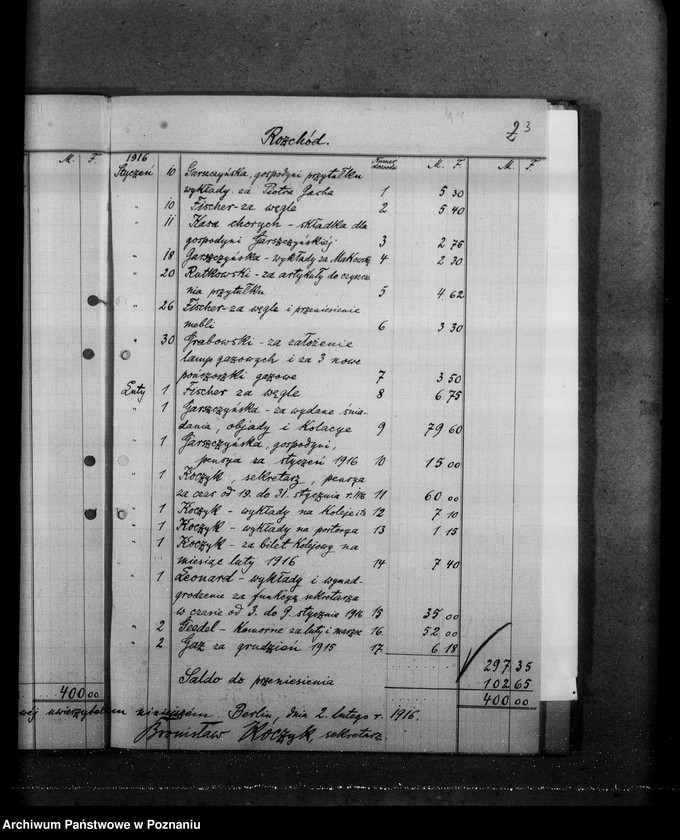 23
Rozchód.
M. F. 1916 Numer dowodu M. F. M. F.
Styczeń 10 Garszczyńska, gospodyni przytułku
wykłady za Piotra Gacha 1 5 30
" 10 Fischer - za węgle 2 5 40
" 11 Kasa chorych - składka dla
gospodyni Garszczyńskiéj 3 2 76
" 18 Garszczyńska - wykłady za 4 2 30
" 20 Rutkowski - za artykuły do czyszcze
nia przytułku 5 4 62
" 26 Fischer - za węgle i przeniesienie
mebli 6 3 30
" 30 Grabowski - za założenie
lamp gazowych i za 3 nowe
pończoszki gazowe 7 3 50
Luty 1 Fischer za węgle 8 6 75
" 1 Garszczyńska - za wydane śnia-
dania, objady i kolacye 9 79 60
" 1 Garszczyńska, gospodyni,
pensya za styczeń 1916 10 15 00
" 1 Koczyk, sekretarz, pensya
za czas od 19. do 31. stycznia r. 1916 11 60 00
" 1 Koczyk - wykłady na koleje 12 7 10
" 1 Koczyk - wykłady na portorya 13 1 15
" 1 Koczyk - za bilet kolejowy na
miesiąc luty 1916 14 7 40
" 1 Leonard - wykłady i wynad-
grodzenie za funkcyę sekretarza
w czasie od 3. do 9. stycznia 1916 15 35 00
" 2 Seedel - Komorne za luty i marzec 16. 52 00
" 2 Gaz za grudzień 1915 17. 6 18
297 35
Saldo do przeniesienia 102 65
400 00 400 00
uwierzytelniam niniejszém Berlin, dnia 2. lutego r. 1916.
Bronisław Koczyk, sekretarz.
Archiwum Państwowe w Poznaniu